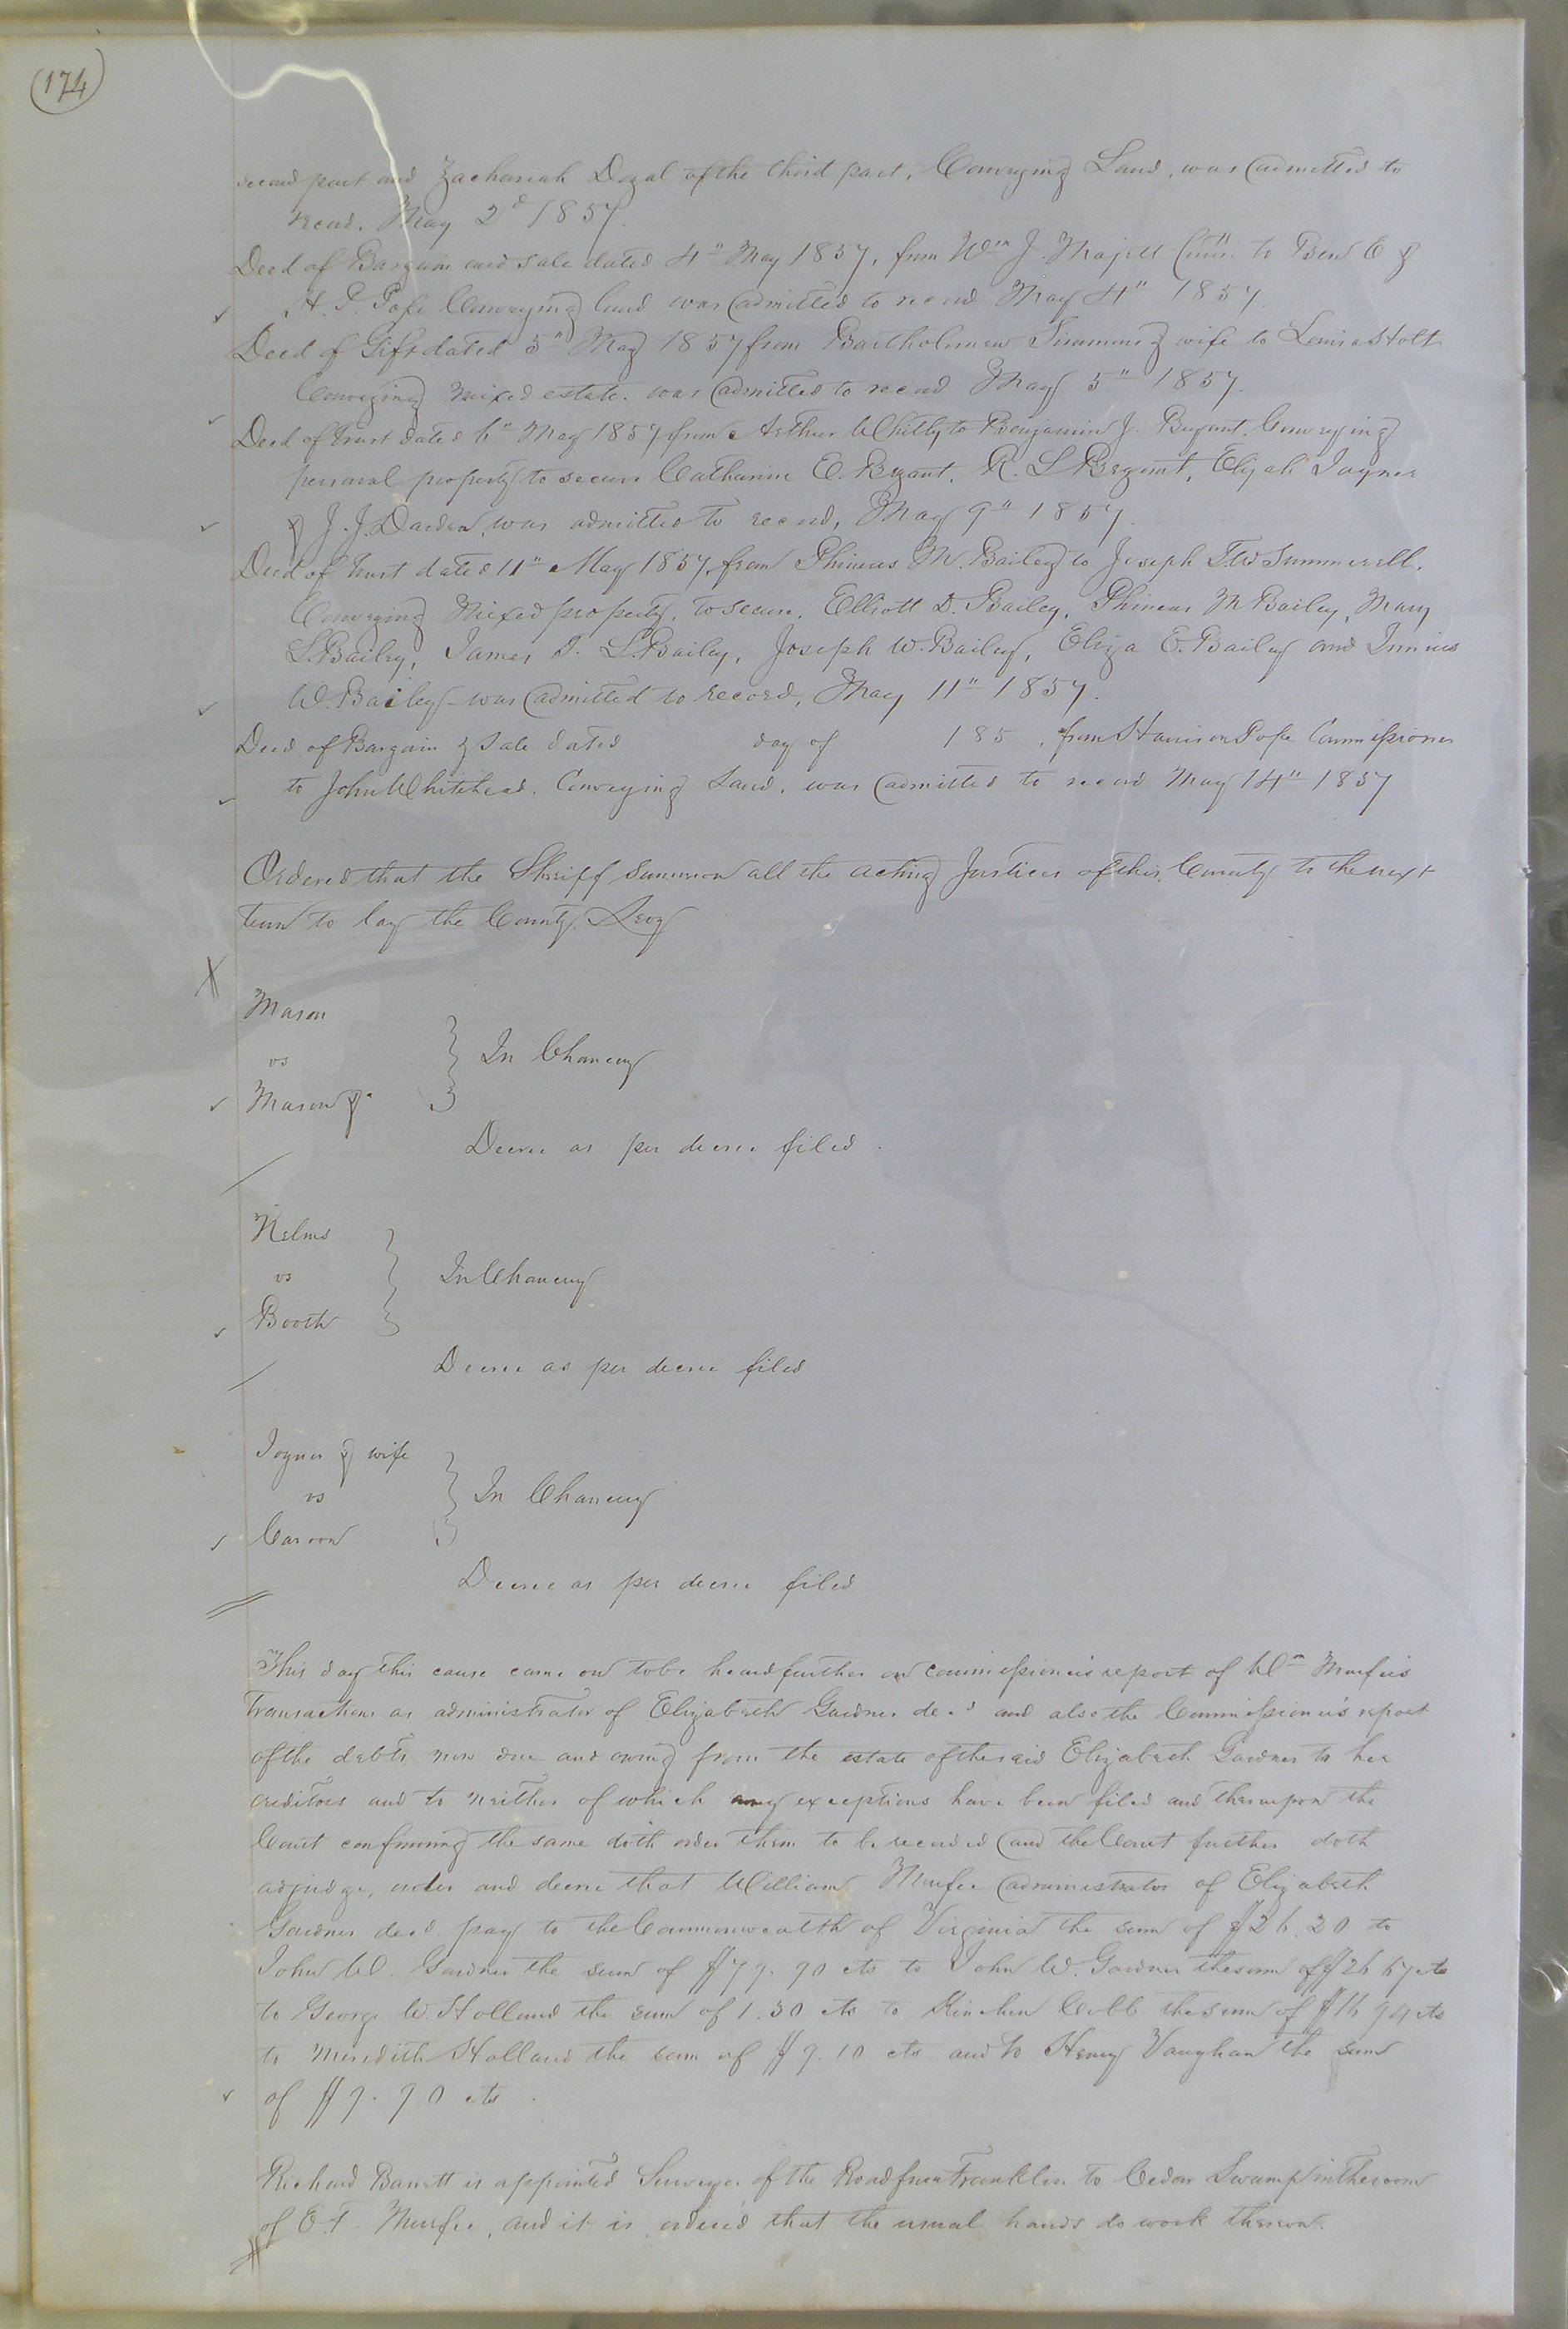 (174)
second part and Zachariah Dozal of the third part, Conveying Land, was admitted to
record. May 2d 1857.
Deed of Bargain and sale dated 4" May 1857, from Wm J. Majett Comr. to Ben E &
H. P. Pope Conveying land was admitted to record May 4" 1857.
Deed of Gift dated 5" May 1857 from Bartholomew Simmons & wife to Louisa Holt
Conveying mixed estate. was admitted to record May 5" 1857.
Deed of Trust dated 6" May 1857 from Arthur Whitly to Benjamin J. Bryant. Conveying
personal property to secure Catharine E. Bryant, R. L Bryant, Elijah Joyner
& J. J. Darden, was admitted to record, May 9" 1857.
Deed of Trust dated 11" May 1857, from Phineus M. Bailey to Joseph T. W Summerell.
Conveying Mixed property, to secure, Elliott D. Bailey, Phineas M Bailey, Mary
L. Bailey, James T. L. Bailey, Joseph W. Bailey, Eliza E. Bailey and Junius
W. Bailey - was admitted to record, May 11" 1857.
Deed of Bargain & Sale dated day of 185 , from Harrison Pope Commissioner
to John Whitehead. Conveying Land, was admitted to record May 14" 1857
Ordered that the Sheriff summon all the acting Justices of this County to the next
term to lay the County Levy
Mason
vs } In Chancery
Mason &c
Decree as per decree filed.
Nelms
vs } In Chancery
Booth
Decree as per decree filed
Joyner & wife
vs } In Chancery
Carson
Decree as per decree filed
This day this cause came on to be heard further on commissioner's report of Wm Murfee's
Transactions as administrator of Elizabeth Gardner decd and also the Commissioner's report
of the debts now due and owing from the estate of the said Elizabeth Gardner to her
creditors and to neither of which any exceptions have been filed and thereupon the
Court confirming the same doth order them to be recorded and the Court further doth
adjudge, order and decree that William Murfee administrator of Elizabeth
Gardner decd. pay to the Commonwealth of Virginia the sum of $26.20 to
John W. Gardner the sum of $79.90 cts to John W. Gardner the sum of $26 67 cts
to George W. Holland the sum of 1.30 cts to Kinchen Cobb the sum of $16 94 cts
to Meredith Holland the sum of $9.10 cts and to Henry Vaughan the sum
of $9.90 cts.
Richard Barrett is appointed Surveyor of the Road from Franklin to Cedar Swamp in the room
of E. F. Murfee, and it is ordered that the usual hands do work thereon.